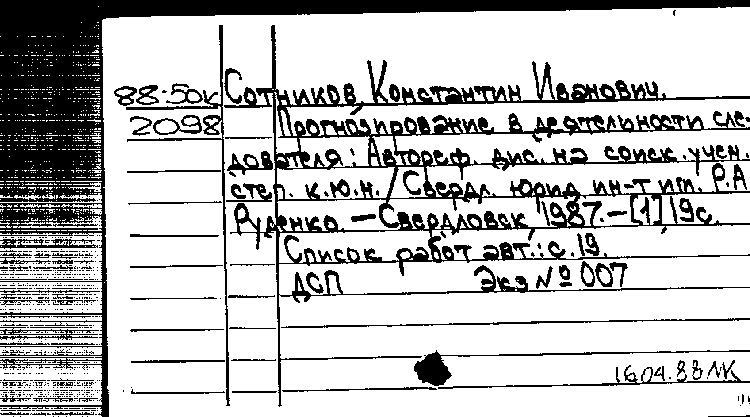 88-50к Сотников, Константин Иванович.
2098 Прогнозирование в деятельности сле-
дователя: Автореф. дис. на соиск. учен.
степ. к.ю.н. / Свердл. юрид. ин-т им. Р.А.
Руденко. — Свердловск, 1987. — [1], 19с.
Список работ авт.: с. 19.
ДСП Экз № 007
1604.88ЛК